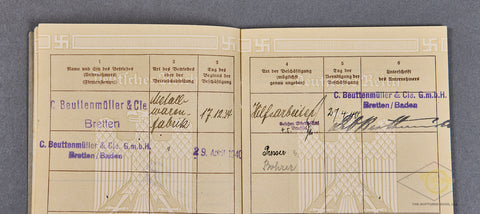 1
Name und Sitz des Betriebes
(Unternehmers)
2
Art des Betriebes
oder der
Betriebsabteilung
3
Tag des
Beginns der
Beschäftigung
C. Beuttenmüller & Cie.
Bretten
Metall-
waren-
fabrik
17.12.34
C. Beuttenmüller & Cie. G.m.b.H.
Bretten / Baden
29. April 1940
4
Art der Beschäftigung
(möglichst
genau angeben)
5
Tag der
Beendigung der
Beschäftigung
6
Unterschrift
des Unternehmers
Hilfsarbeiter
C. Beuttenmüller & Cie. G.m.b.H.
Bretten / Baden
Presser
Bohrer